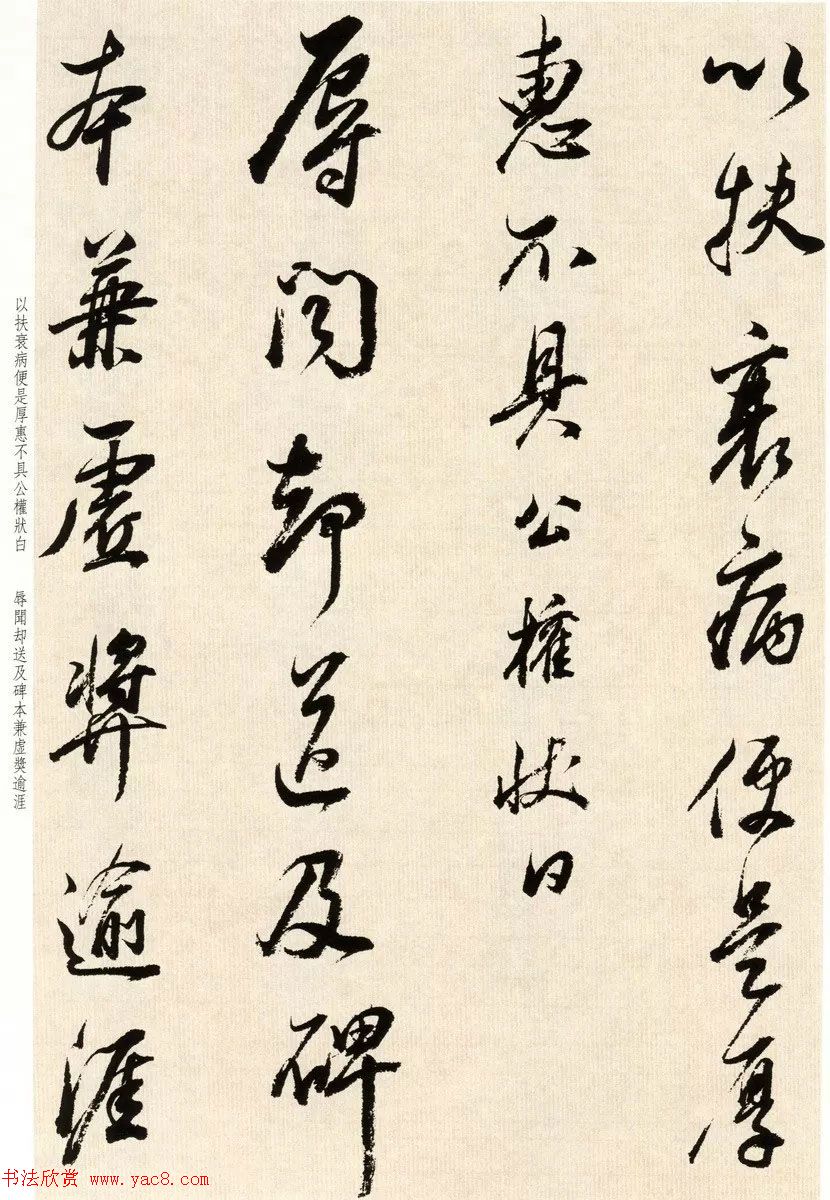 以扶衰病便是厚
惠不具公權狀白
辱問却送及碑
本兼虛獎逾涯
以扶衰病便是厚惠不具公權狀白　辱聞却送及碑本兼虛獎逾涯
书法欣赏 www.yac8.com